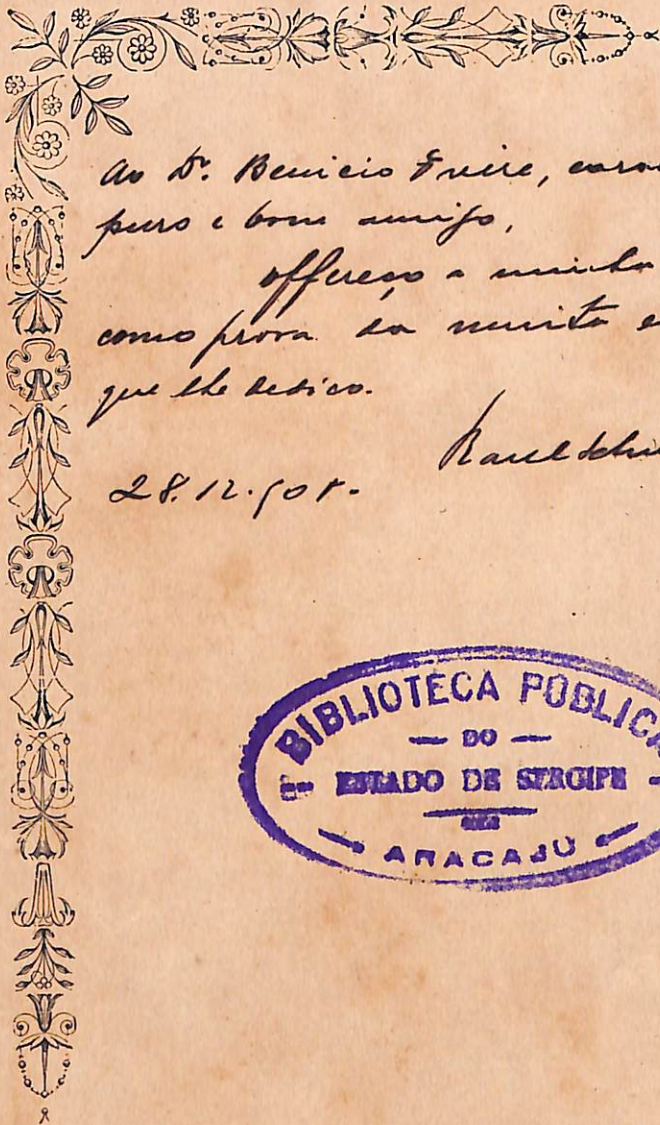 Ao Dr. Benicio Freire,
puro e bom amigo,
offereço a minha
como prova da muita
que lhe dedico.
Raul
28.12.908.
BIBLIOTECA PÚBLICA
— DO —
ESTADO DE SERGIPE
ARACAJU